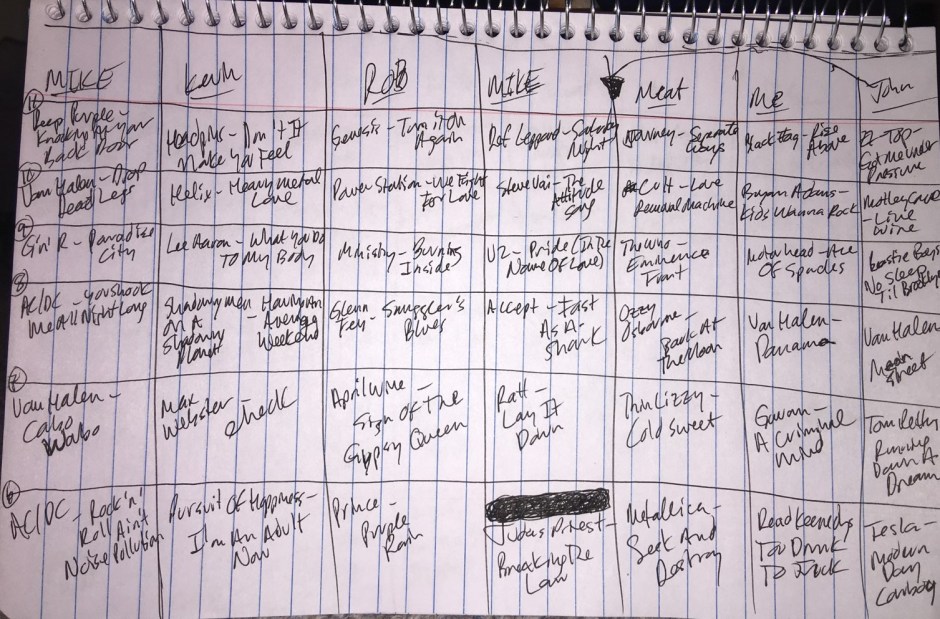 MIKE
Kevin
ROB
MIKE
Meat
Me
John
11
Deep Purple -
Knocking At Your
Back Door
Headpins - Don't It
Make You Feel
Genesis - Turn It On
Again
Def Leppard - Saturday
Night
Journey - Separate
Ways
Black Flag - Rise
Above
ZZ Top -
Got Me Under
Pressure
10
Van Halen - Drop
Dead Legs
Helix - Heavy Metal
Love
Power Station - We Fight
For Love
Steve Vai - The
Attitude
Song
Cult - Love
Removal Machine
Bryan Adams -
Kids Wanna Rock
Motley Crue
- Live
Wire
9
G n' R - Paradise
City
Lee Aaron - What You Do
To My Body
Ministry - Burning
Inside
U2 - Pride (In The
Name Of Love)
The Who -
Eminence
Front
Motorhead - Ace
Of Spades
Beastie Boys
No Sleep
Til Brooklyn
8
AC/DC - You Shook
Me All Night Long
Sundaymen - Having An
On A Average
Sunday Weekend
Planet
Glenn
Frey - Smuggler's
Blues
Accept - Fast
As A
Shark
Ozzy
Osbourne -
Bark At
The Moon
Van Halen -
Panama
Van Halen
Mean
Street
7
Van Halen -
Cabo
Wabo
Max
Webster - Check
April Wine -
Sign Of The
Gypsy Queen
Ratt -
Lay It
Down
Thin Lizzy -
Cold Sweat
Gowan -
A Criminal
Mind
Tom Petty
Running
Down A
Dream
6
AC/DC - Rock 'n'
Roll Ain't
Noise Pollution
Pursuit Of Happiness -
I'm An Adult
Now
Prince -
Purple
Rain
Judas Priest -
Breaking The
Law
Metallica -
Seek And
Destroy
Dead Kennedys
Too Drunk
To Fuck
Tesla -
Modern
Day
Cowboy